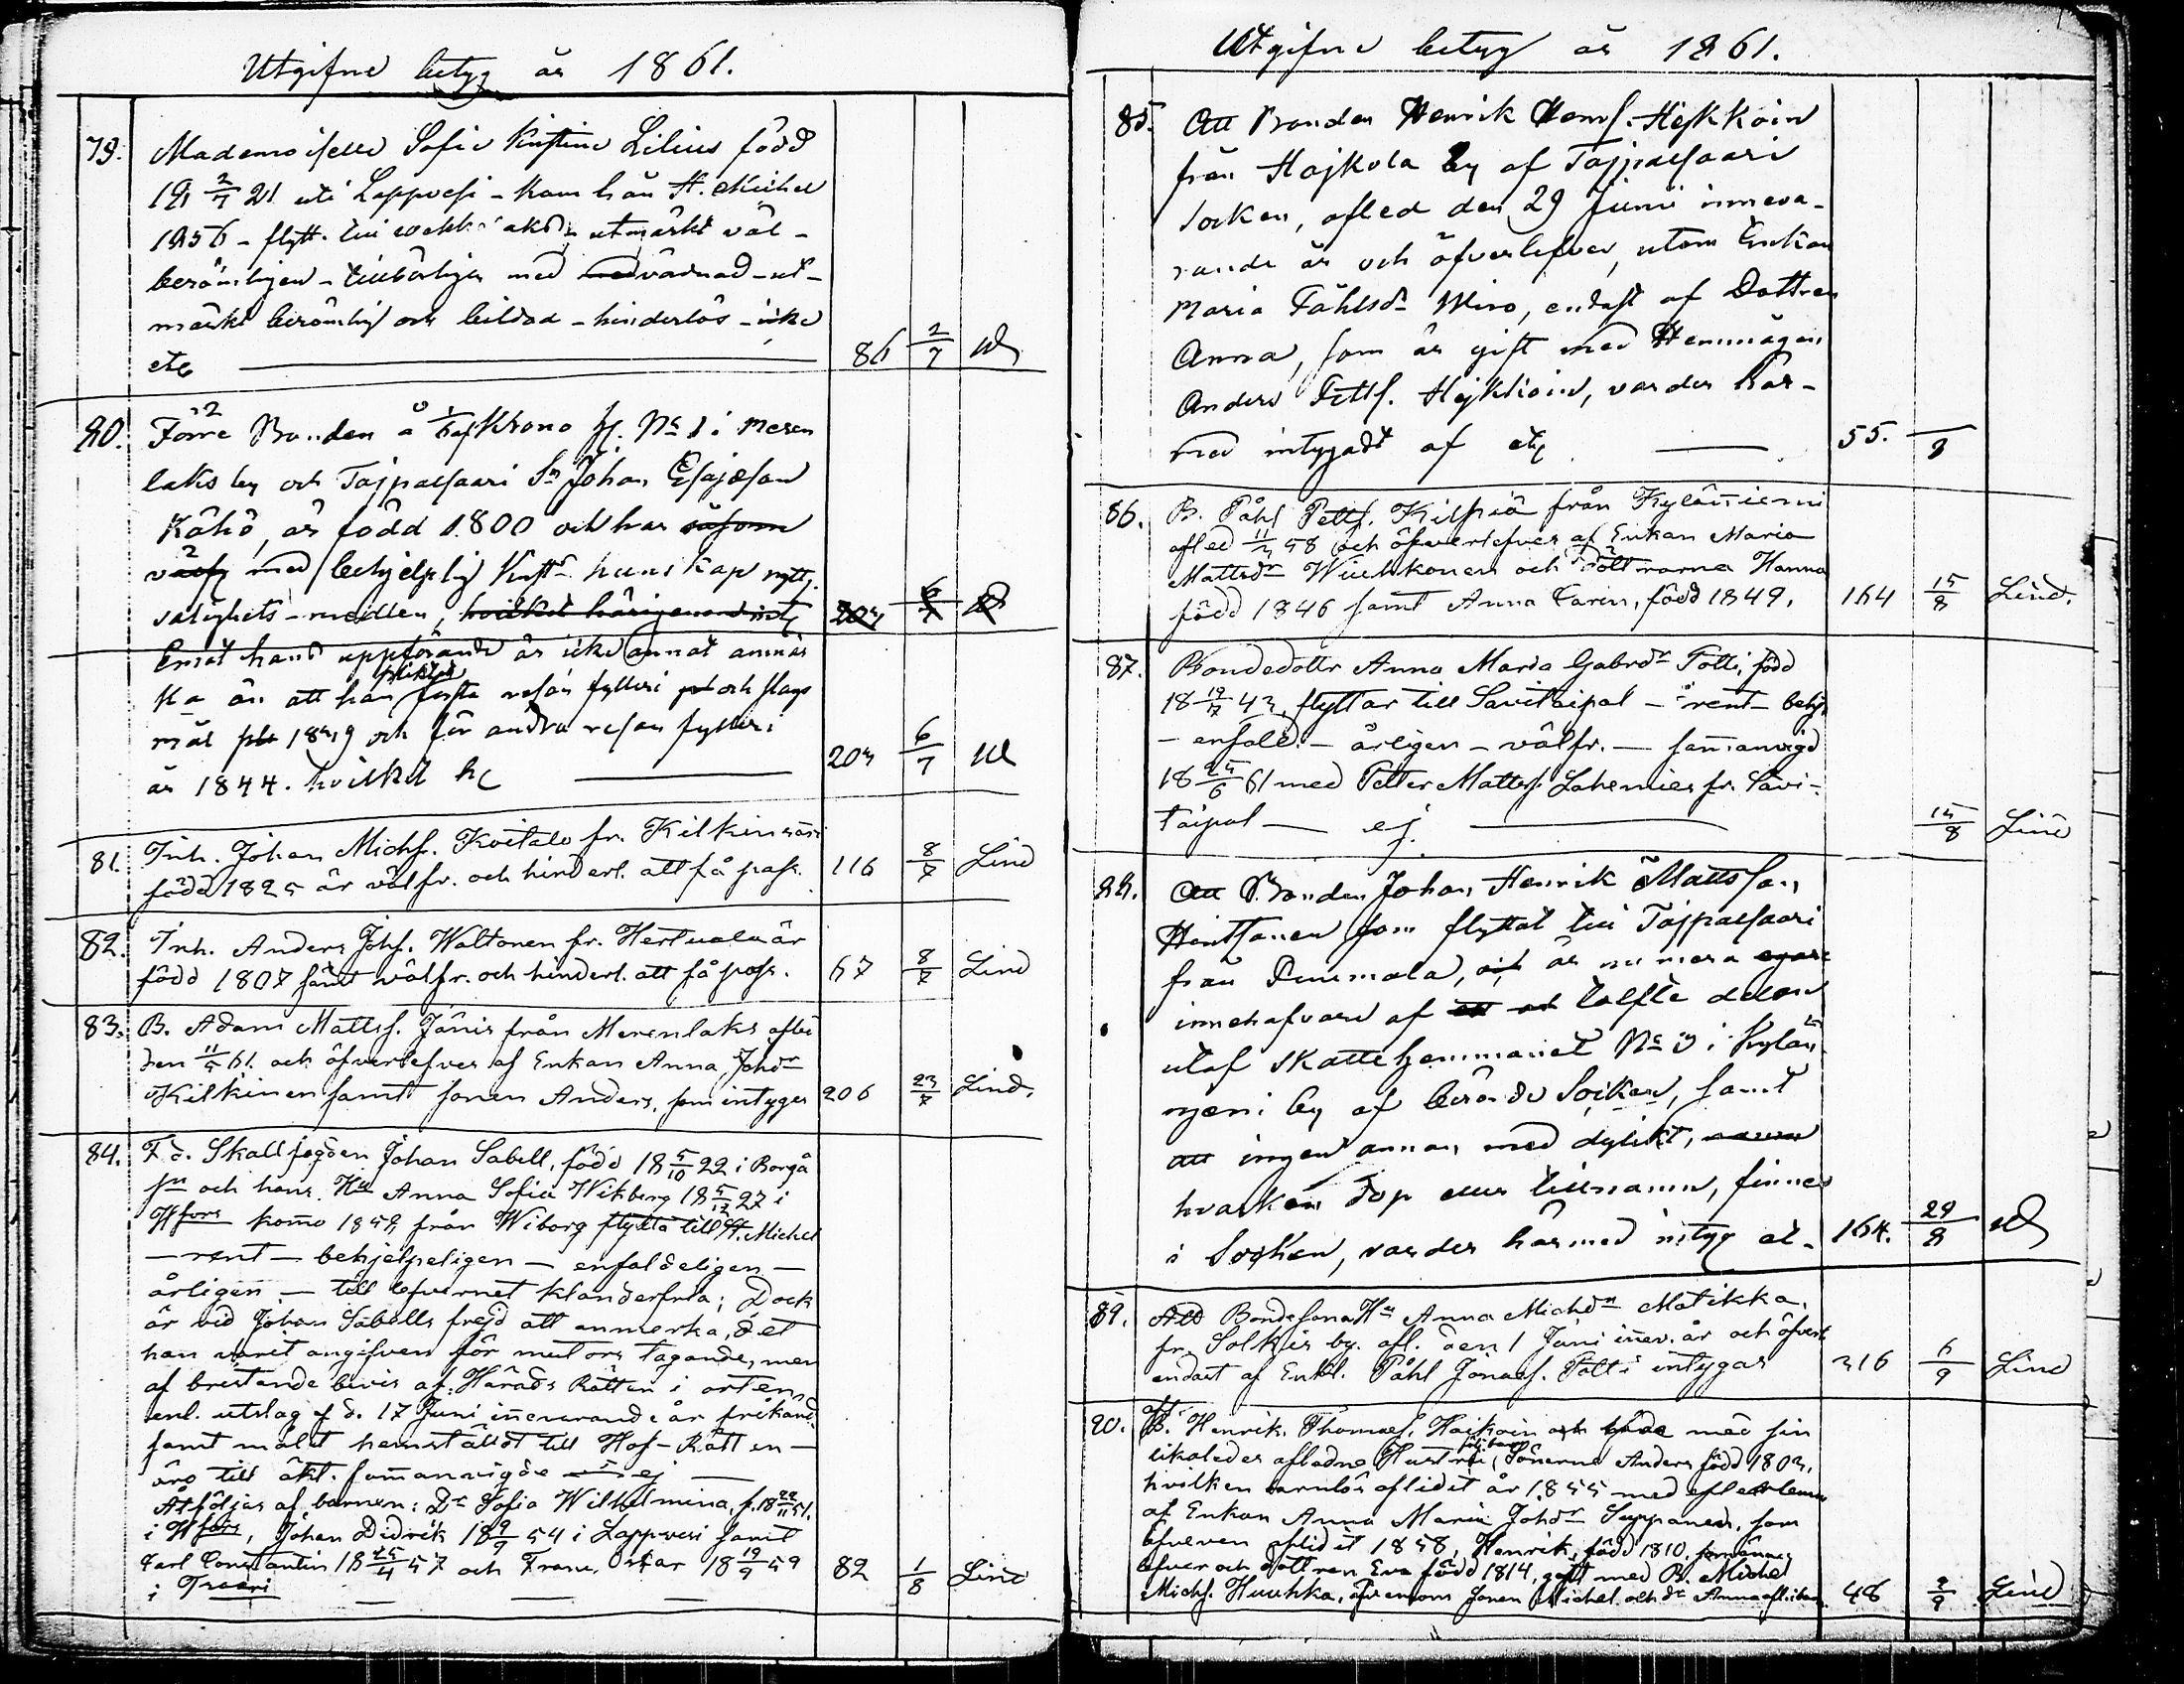 Utgifne betyg år 1861.
79. Mademoiselle Sofie Kristine Lilius född
18 2/7 21 uti Lappvesi - kom från St. Michel
1856 - flytt. till - utmärkt väl -
berömligen - tillbörligen med vårdnad - ut-
märkt berömlig och bildad - hinderlös - icke
etc 86 2/7
80. Förre Bonden å Krono H. No 1 i Meren
laks by och Tajpalsaari Sn Johan Esajæson
Kähö, är född 1800 och har såsom
med behjelplig Kristd. kunskap nyttj.
salighets-medlen, hvilket härigenom 203 6/7
Emot hans uppförande är icke annat anmär
ka än att han pliktat första resan fylleri och slags
mål 1839 och för andra resan fylleri
år 1844. hvilket 203 6/7
81. Inh. Johan Michs. Koitalo fr. Kilkinsaari
född 1825 är välfr. och hinderl. att få pass. 116 8/7 Lind
82. Inh. Anders Johs. Waltonen fr. Hertuala är
född 1807 samt välfr. och hinderl. att få pass. 67 8/7 Lind
83. B. Adam Matts. Jänis från Merenlaks afled
den 11/5 61. och öfverlefves af Enkan Anna Johdr
Kilkinen samt sonen Anders, som intygas 206 23/7 Lind.
84. F. d. Skallfogden Johan Sabell, född 18 5/10 22 i Borgå
sn och hans Hu Anna Sofia Wikberg 18 5/12 27 i
Hfors kommo 1859 från Wiborg flytta till St. Michel
— rent — behjelpeligen — enfaldeligen —
årligen — till lefvernet klanderfria; Dock
är vid Johan Sabells frejd att anmerka, det
han varit angifven för mutors tagande, men
af bristande bevis af Härads Rätten i orten
enl. utslag af d. 17 Juni innevarande år frikand
samt målet hemstäldt till Hof-Rätten —
äro till äkt. sammanvigde ej —
Åtföljas af barnen: Dr Sofia Wilhelmina, f. 18 22/11 51.
i Hfors, Johan Didrik 18 9/9 54 i Lappvesi samt
Carl Constantin 18 25/4 57 och Frans Oskar 18 19/9 59
i 82 1/8 Lind
Utgifne betyg år 1861.
85. Att Bonden Henrik Hens. Hejkkoin
från Hajkola by af Tajpalsaari
Socken, afled den 29 Juni inneva-
rande år och öfverlefves, utom Enkan
Maria Påhlsdr Miro, endast af Dottren
Anna, som är gift med Hemmågen
Anders Petts. Hejkkoin, varder här-
med intygadt af etc 55. /8
86. B. Påhl Petts. Kilpiä från Kyläniemi
afled 11/3 58 och öfverlefves af Enkan Maria
Mattsdr Wiuhkonen och döttrarna Hanna
född 1846 samt Anna Caren, född 1849. 164 15/8 Lind.
87. Bondedottr Anna Maria Gabrdr Totti, född
18 19/7 43, flyttar till Savitaipal — rent — behj.
— enfald. — årligen — välfr. — sammanvigd
18 25/6 61 med Petter Matts. Lahenies fr. Savi-
taipal — ej. — 15/8 Lind
88. Att Bonden Johan Henrik Mattsson
Hintsanen som flyttat till Tajpalsaari
från Pummala, är nu mera egare
innehafvare af tolfte delen
utaf Skattehemmanet No 3 i Kylän
niemi by af berörde Socken, samt
att ingen annan med dylikt,
hvarken dop eller tillnamn, finnes
i Socken, varder härmed intyg at. 164. 29/8
89. Att Bondesona Hu Anna Michdr Matikka,
fr. Solkis by. afl. den 1 Juni innev. år och öfverl.
endast af Enkl. Påhl Jonass. Totti intygas 316 6/9 Lind
90. Att B. Henrik Thomass. Haikoin med sin
likaledes aflidne Hustru Sönerne Anders född 1803,
hvilken barnlös aflidit år 1855 med
af Enkan Anna Maria Johdr Suppanen, som
äfven aflidit 1858, Henrik, född 1810,
och dottren Eva född 1814, gift med B. Michel
Michs. Huuhka, sonen Michel och dr Anna 46 9/9 Lind